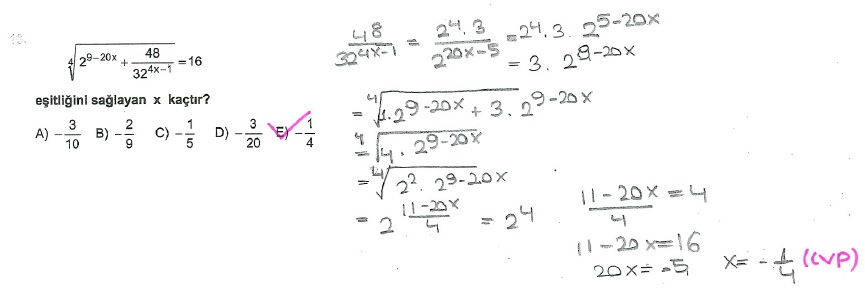 13.
∜(2^(9–20x) + 48/32^(4x–1)) = 16
eşitliğini sağlayan x kaçtır?
A) –3/10 B) –2/9 C) –1/5 D) –3/20 E) –1/4
48/32^(4x-1) = 2^4.3/2^(20x-5) = 2^4. 3. 2^(5-20x)
= 3. 2^(9-20x)
= ∜(1.2^(9-20x) + 3. 2^(9-20x))
= ∜(4. 2^(9-20x))
= ∜(2^2. 2^(9-20x))
= 2^((11-20x)/4) = 2^4
(11-20x)/4 = 4
11-20x=16
20x= -5 x= -1/4 (CVP)